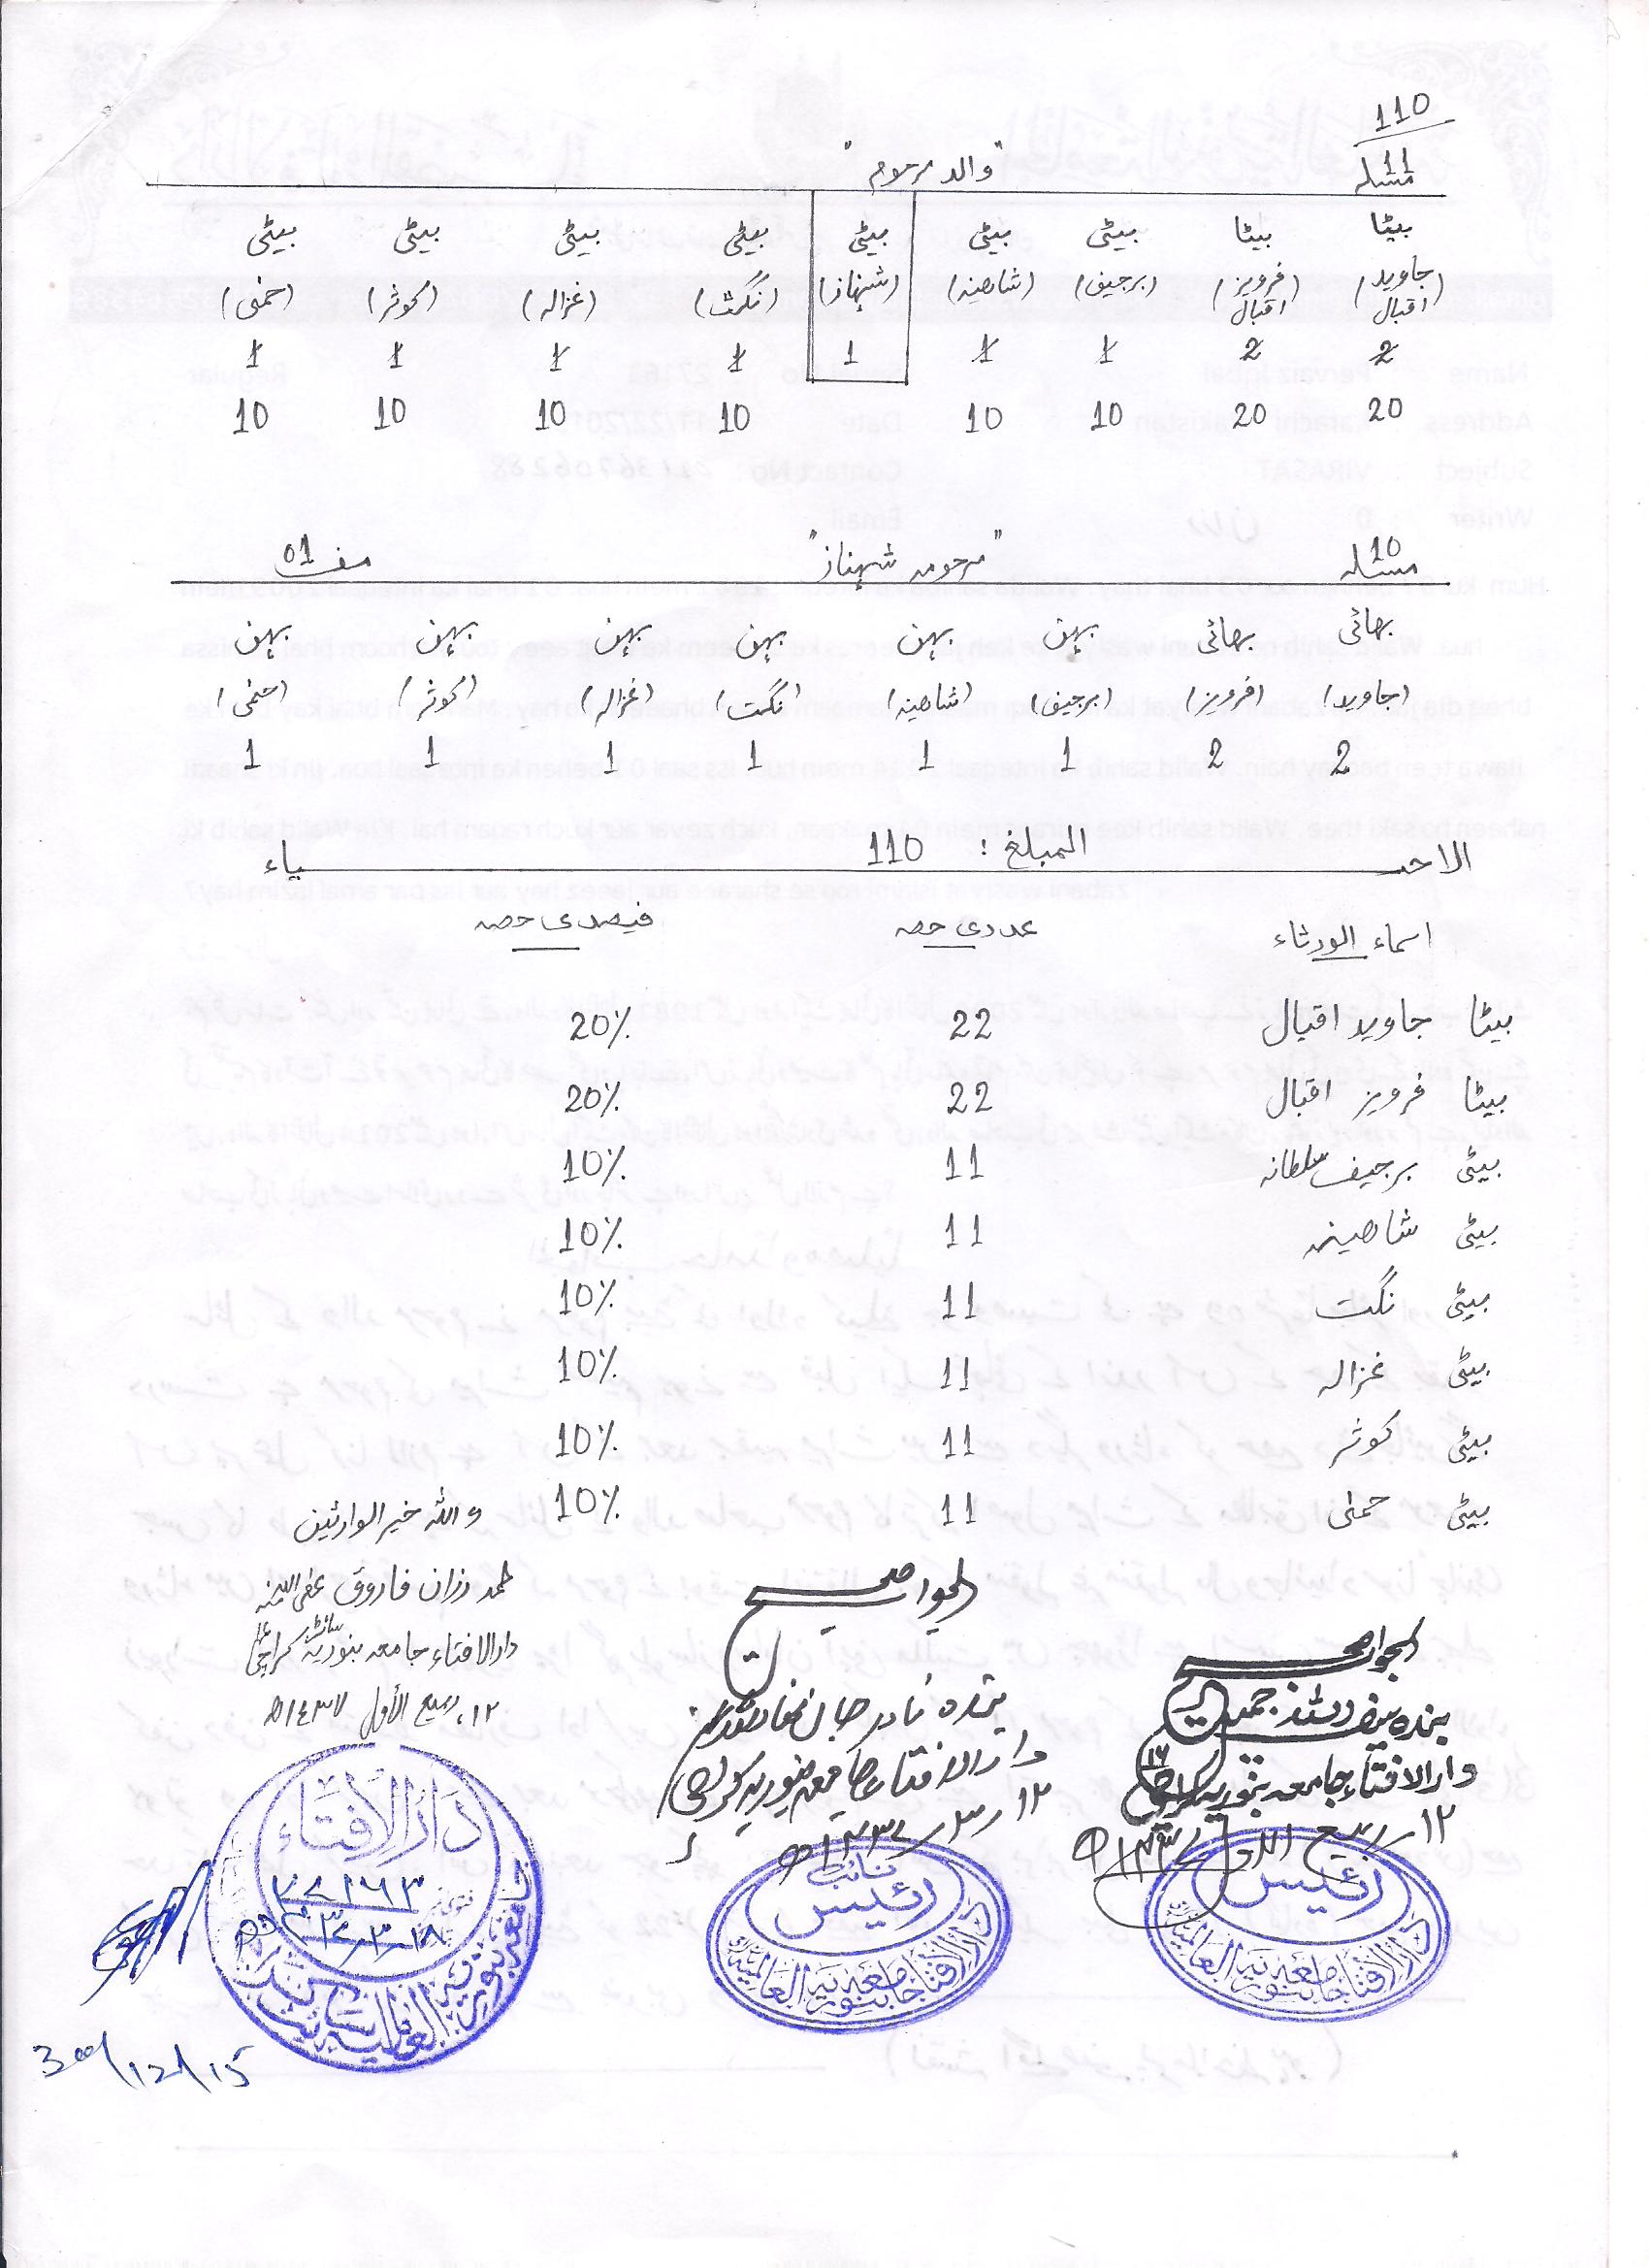 110
مسئلہ 11
"والد مرحوم"
بیٹا بیٹا بیٹی بیٹی بیٹی بیٹی بیٹی بیٹی بیٹی
(جاوید اقبال) (فرویز اقبال) (برجیف) (شاھینہ) (شہناز) (نگہت) (غزالہ) (کوثر) (حمنٰی)
2 2 1 1 1 1 1 1 1
20 20 10 10 10 10 10 10
مسئلہ 10 "مرحومہ شہناز" مف 01
بھائی بھائی بہن بہن بہن بہن بہن بہن
(جاوید) (فرویز) (برجیف) (شاھینہ) (نگہت) (غزالہ) (کوثر) (حمنٰی)
2 2 1 1 1 1 1 1
الاحیاء المبلغ : 110
اسماء الورثاء عددی حصہ فیصدی حصہ
بیٹا جاوید اقبال 22 20%
بیٹا فرویز اقبال 22 20%
بیٹی برجیف سلطانہ 11 10%
بیٹی شاھینہ 11 10%
بیٹی نگہت 11 10%
بیٹی غزالہ 11 10%
بیٹی کوثر 11 10%
بیٹی حمنٰی 11 10%
واللہ خیر الوارثین
محمد رزان فاروق عفی اللہ عنہ
دارالافتاء جامعہ بنوریہ سائٹ کراچی
۱۲، ربیع الأول ۱٤۳۷ھ
الجواب صحیح
بندہ نادر جان
دارالافتاء جامعہ بنوریہ کراچی
۱۲ / ۳ / ۱۴۳۷ھ
الجواب صحیح
بندہ
دارالافتاء جامعہ بنوریہ کراچی ۱۶
۱۲ ربیع الاول ۱۴۳۷ھ
دار الإفتاء
فتویٰ نمبر ۲۷۱۶۳
جامعہ بنوریہ العالمیہ
نائب رئیس
دار الافتاء جامعہ بنوریہ العالمیہ
رئیس
دار الافتاء جامعہ بنوریہ العالمیہ
30/12/15